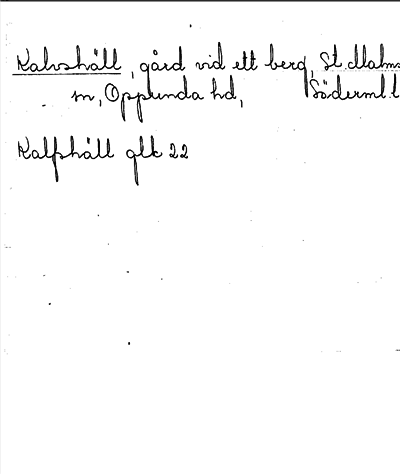 Kalvshäll, gård vid ett berg, St. Malms
sn, Oppunda hd, Söderml. l
Kalfhäll glk 22